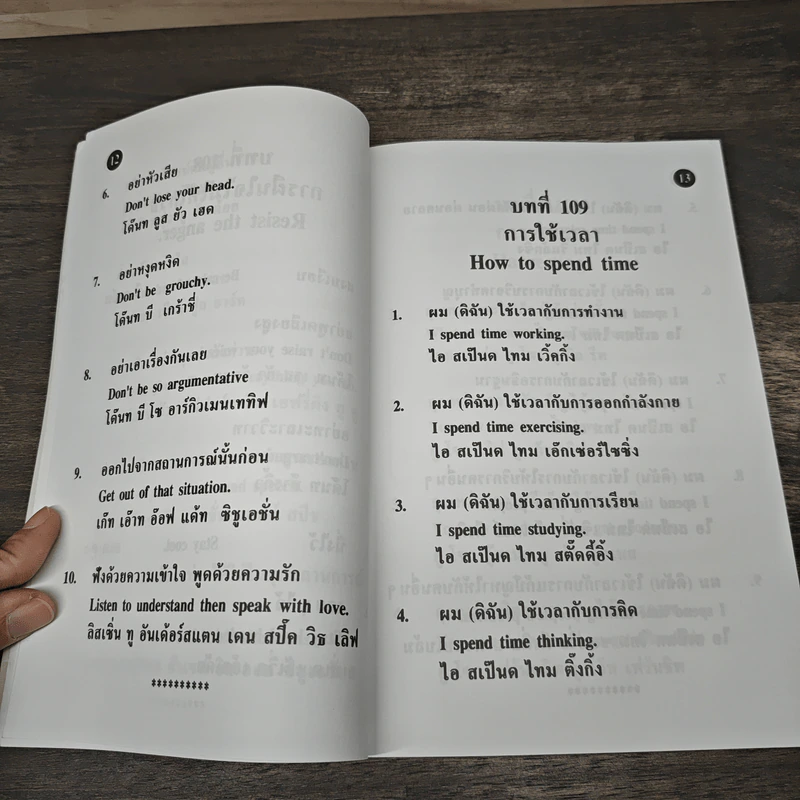 12
6. อย่าหัวเสีย
Don't lose your head.
โด๊นท ลูส ยัว เฮด
7. อย่าหงุดหงิด
Don't be grouchy.
โด๊นท บี เกร้าชี่
8. อย่าเอาเรื่องกันเลย
Don't be so argumentative
โด๊นท บี โซ อาร์กิวเมนเททิฟ
9. ออกไปจากสถานการณ์นั้นก่อน
Get out of that situation.
เก๊ท เอ๊าท อ๊อฟ แด้ท ซิชูเอชั่น
10. ฟังด้วยความเข้าใจ พูดด้วยความรัก
Listen to understand then speak with love.
ลิสเซิ่น ทู อันเด้อร์สแตน เดน สปี๊ค วิธ เลิฟ
**********
13
บทที่ 109
การใช้เวลา
How to spend time
1. ผม (ดิฉัน) ใช้เวลากับการทำงาน
I spend time working.
ไอ สเป็นด ไทม เวิ้คกิ้ง
2. ผม (ดิฉัน) ใช้เวลากับการออกกำลังกาย
I spend time exercising.
ไอ สเป็นด ไทม เอ๊กเซ่อร์ไซซิ่ง
3. ผม (ดิฉัน) ใช้เวลากับการเรียน
I spend time studying.
ไอ สเป็นด ไทม สตั๊ดดี้อิ้ง
4. ผม (ดิฉัน) ใช้เวลากับการคิด
I spend time thinking.
ไอ สเป็นด ไทม ติ๊งกิ้ง